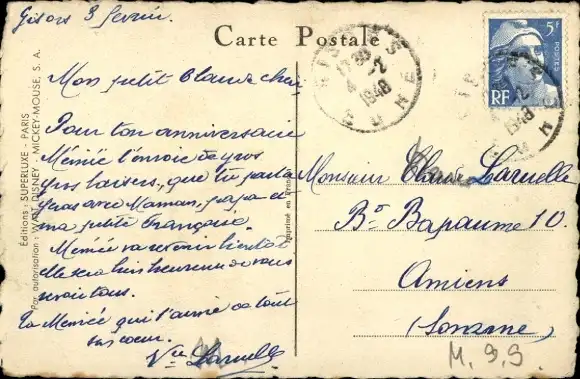 Gisors 3 février
Carte Postale
Mon petit Claude chéri
Pour ton anniversaire
Mémée t'envoie de gros
gros baisers, que tu partageras avec Maman, papa et
ma petite Françoise.
Mémée va revenir bientôt
elle sera bien heureuse de vous
revoir tous.
Ta Mémée qui t'aime de tout
son coeur.
Vve Laruelle
Éditions : SUPERLUXE - PARIS
Par autorisation : WALT DISNEY - MICKEY-MOUSE, S. A.
Imprimé en France
GISORS
EURE
4 -2
1948
5F
POSTES
RF
Monsieur Claude Laruelle
Bd Bapaume 10.
Amiens
(Somme)
M. 99